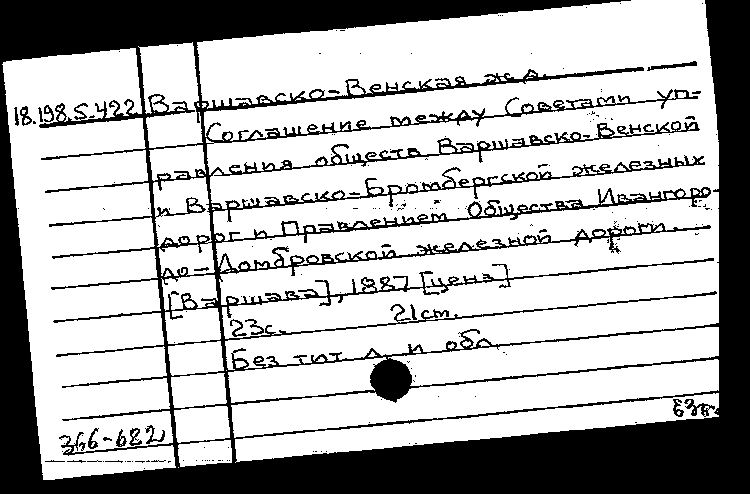 18.198.5.422 Варшавско-Венская ж.д.
Соглашение между Советами уп-
равления обществ Варшавско-Венской
и Варшавско-Бромбергской железных
дорог и Правлением Общества Ивангоро-
до-Домбровской железной дороги.
[Варшава], 1887 [ценз]
23с. 21см.
Без тит л. и обл.
366-682